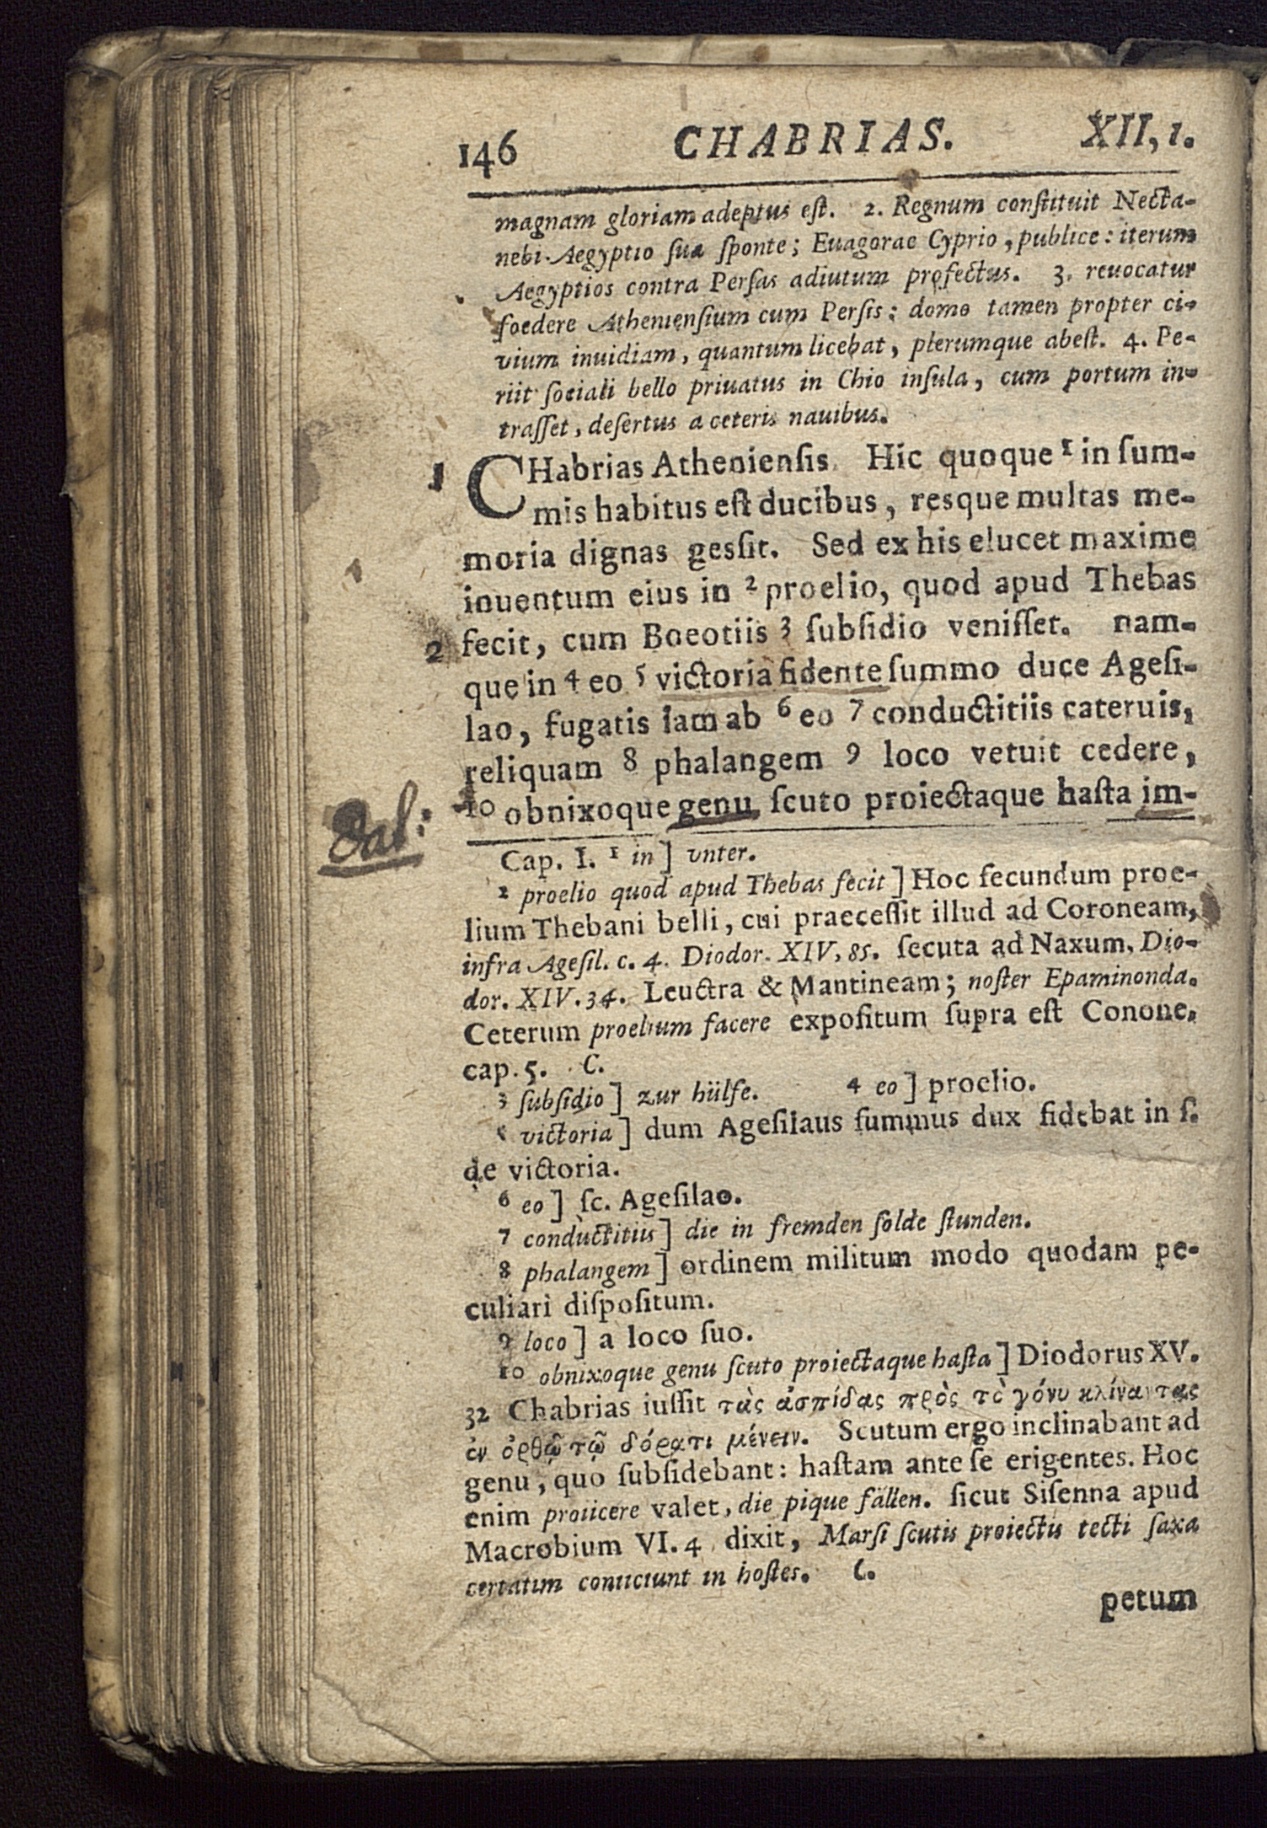 146 CHABRIAS. XII, 1.
magnam gloriam adeptus eſt. 2. Regnum conſtituit Necta-
nebi Aegyptio ſua ſponte; Euagorae Cyprio, publice: iterum
Aegyptios contra Perſas adiutum profectus. 3. reuocatur
foedere Athenienſium cum Perſis: domo tamen propter ci-
vium inuidiam, quantum licebat, plerumque abeſt. 4. Pe-
riit ſociali bello priuatus in Chio inſula, cum portum in-
traſſet, deſertus a ceteris nauibus.
1 CHabrias Athenienſis. Hic quoque 1 in ſum-
mis habitus eſt ducibus, resque multas me-
moria dignas gessit. Sed ex his elucet maxime
inuentum eius in 2 proelio, quod apud Thebas
2 fecit, cum Boeotiis 3 ſubſidio veniſſet. nam-
que in 4 eo 5 victoria fidente ſummo duce Ageſi-
lao, fugatis iam ab 6 eo 7 conductitiis cateruis,
reliquam 8 phalangem 9 loco vetuit cedere,
10 obnixoque genu ſcuto proiectaque haſta im-
Dat:
Cap. I. 1 in] vnter.
2 proelio quod apud Thebas fecit] Hoc ſecundum proe-
lium Thebani belli, cui praeceſſit illud ad Coroneam,
infra Ageſil. c. 4. Diodor. XIV, 85. ſecuta ad Naxum, Dio-
dor. XIV. 34. Leuctra & Mantineam; noſter Epaminonda.
Ceterum proelium facere expoſitum ſupra eſt Conone.
cap. 5. C.
3 ſubſidio] zur hülfe. 4 eo] proelio.
5 victoria] dum Ageſilaus ſummus dux fidebat in ſ.
de victoria.
6 eo] ſc. Ageſilao.
7 conductitiis] die in fremden ſolde ſtunden.
8 phalangem] ordinem militum modo quodam pe-
culiari diſpoſitum.
9 loco] a loco ſuo.
10 obnixoque genu ſcuto proiectaque haſta] Diodorus XV.
32 Chabrias iuſſit τὰς ἀσπίδας πρὸς τὸ γόνυ κλίναντας
ἐν ὀρθῷ τῷ δόρατι μένειν. Scutum ergo inclinabant ad
genu, quo ſubſidebant: haſtam ante ſe erigentes. Hoc
enim proiicere valet, die pique fällen. ſicut Siſenna apud
Macrobium VI. 4 dixit, Marſi ſcutis proiectis tecti ſaxa
certatim coniiciunt in hoſtes. C.
petum